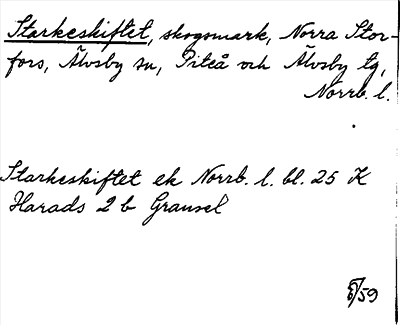 Starkeskiftet, skogsmark, Norra Stor-
fors, Älvsby sn, Piteå och Älvsby tg,
Norrb. l.
Starkeskiftet ek Norrb. l. bl. 25 K
Harads 2 b Gransel
/59